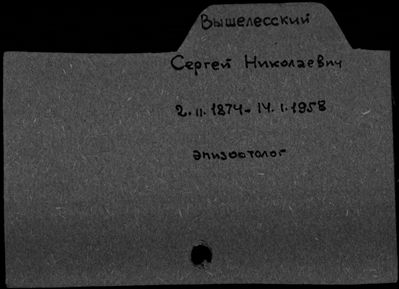 Вышелесский
Сергей Николаевич
2.II.1874-14.I.1958
эпизоотолог